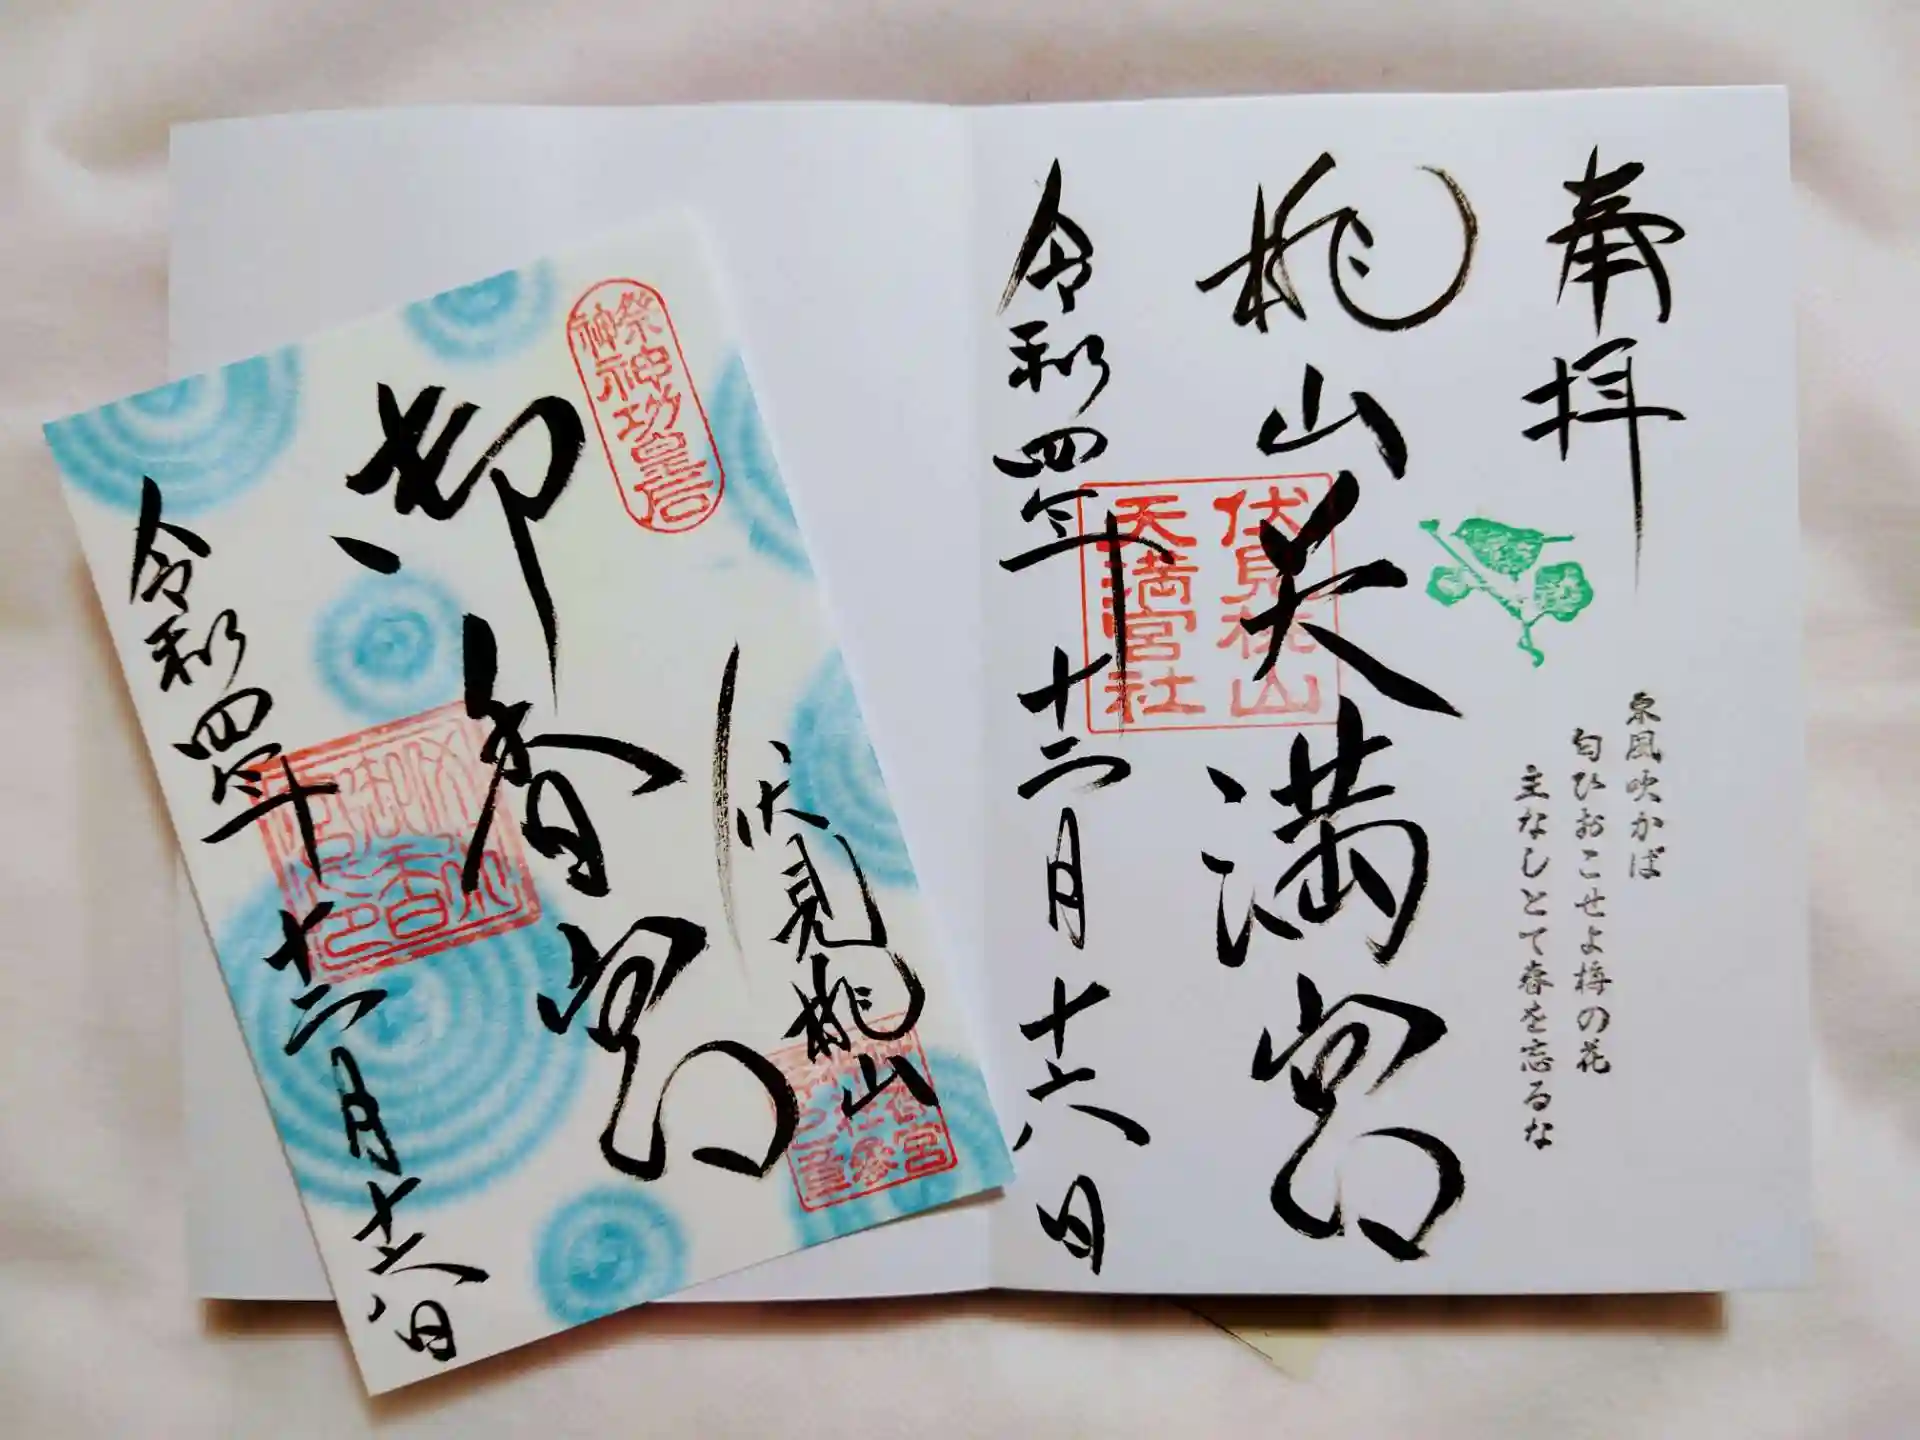 奉拝
東風吹かば
匂ひおこせよ梅の花
主なしとて春を忘るな
桃山天満宮
伏見桃山
天満宮社
令和四年十二月十六日
祭神
神功皇后
伏見桃山
御香宮
令和四年十二月十六日